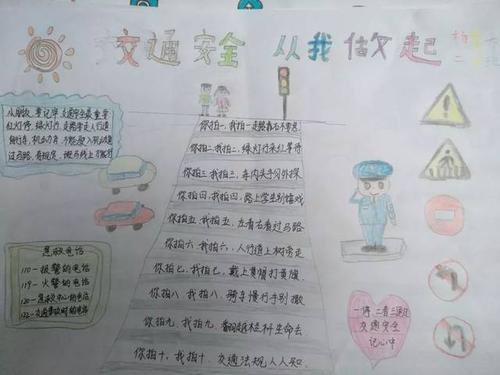 交通安全 从我做起
小朋友,要记牢,交通安全最重要
红灯停,绿灯行,走路要走人行道
急救电话
110-报警的电话
119-火警的电话
120-急救中心的电话
122-交通事故时的电话
你拍一,我拍一,走路靠右不要急
你拍二,我拍二,绿灯行来红等待
你拍三,我拍三,车内头手勿外探
你拍四,我拍四,路上学生别嬉戏
你拍五,我拍五,左看右看过马路
你拍六,我拍六,人行道上树旁走
你拍七,我拍七,戴上黄帽打黄旗
你拍八,我拍八,骑车慢行手别撒
你拍九,我拍九,翻越栏杆生命丢
你拍十,我拍十,交通法规人人知
一停二看三通过
交通安全
记心中